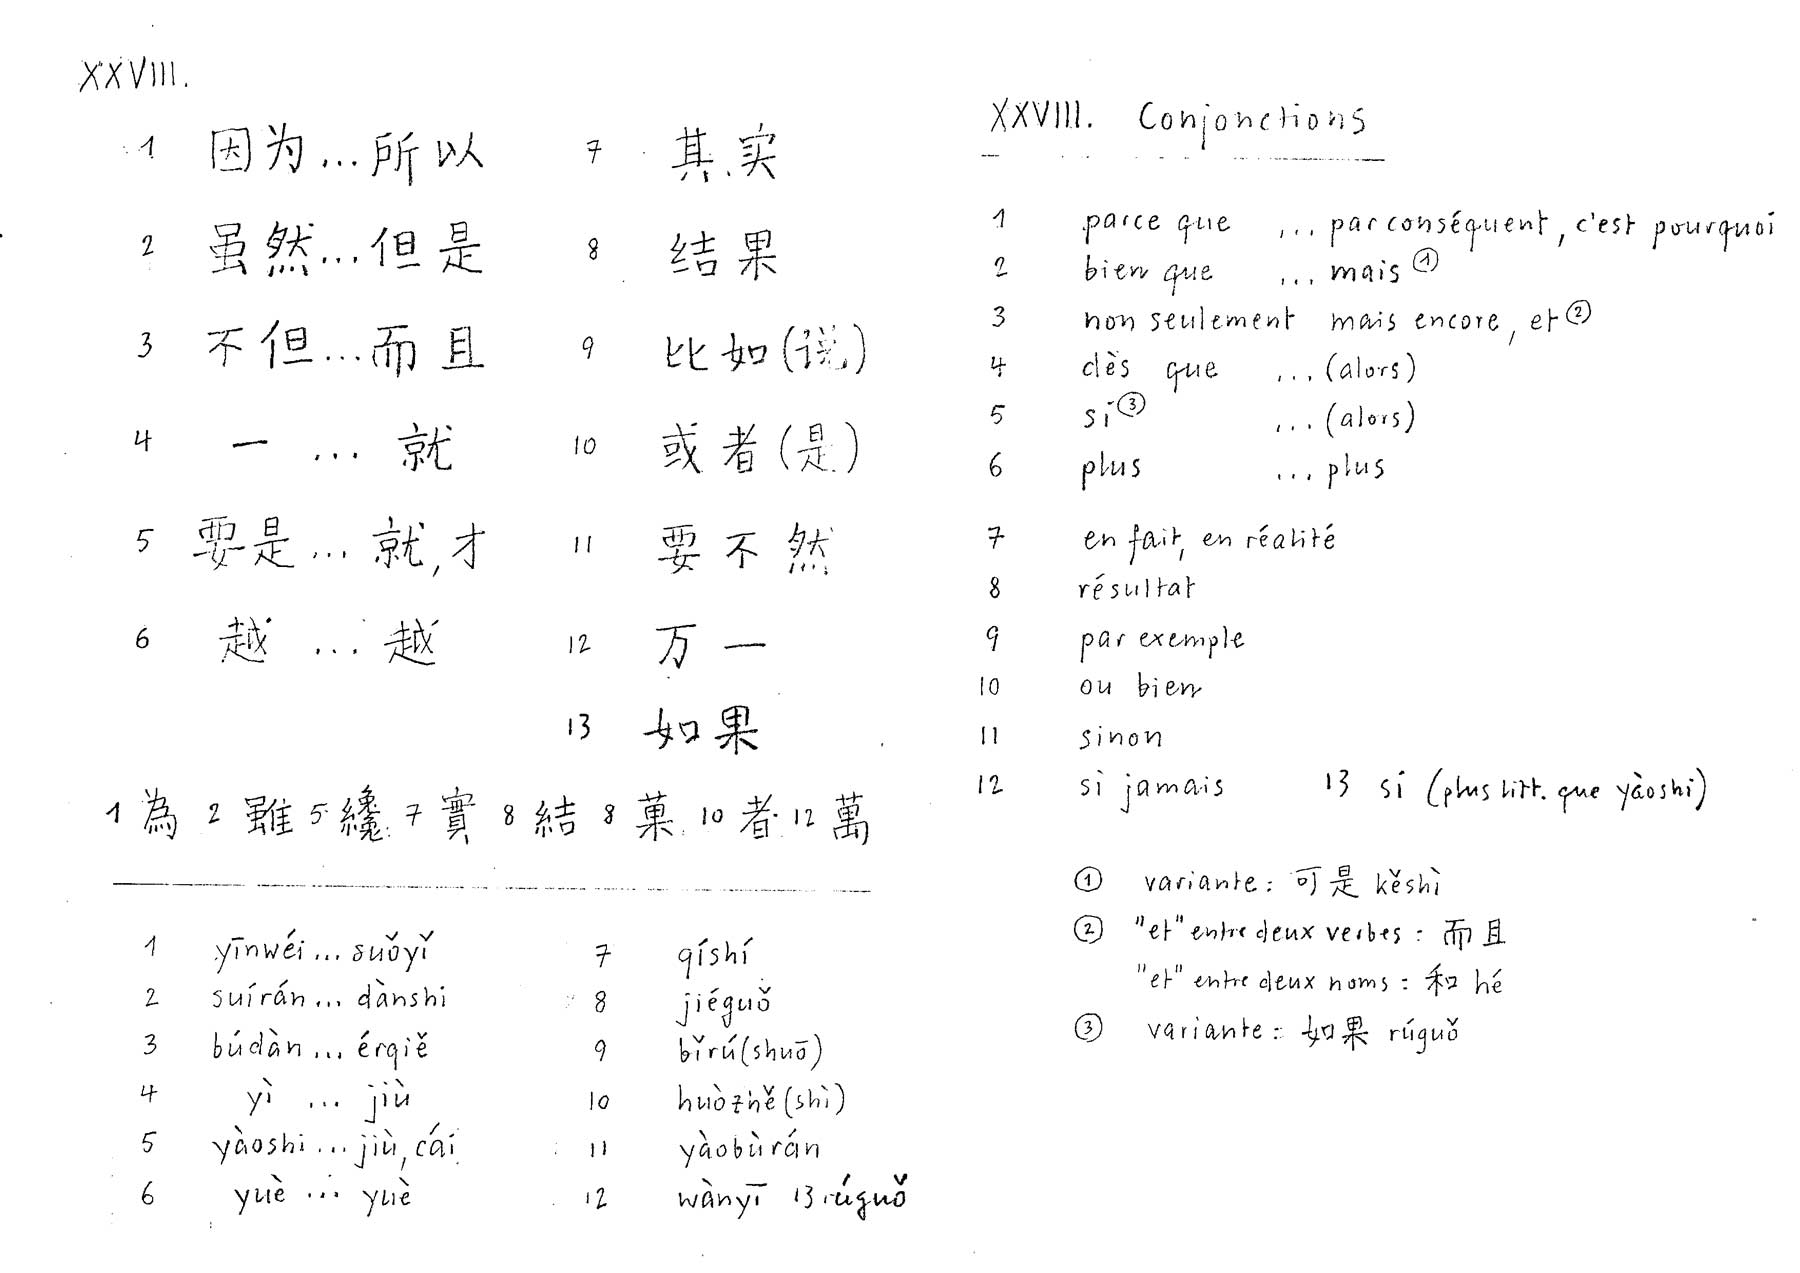 XXVIII.
1 因为...所以 7 其实
2 虽然...但是 8 结果
3 不但...而且 9 比如(说)
4 一 ... 就 10 或者(是)
5 要是...就,才 11 要不然
6 越 ... 越 12 万一
13 如果
1 為 2 雖 5 纔 7 實 8 結 8 菓 10 者 12 萬
1 yīnwéi...suǒyǐ 7 qíshí
2 suírán...dànshi 8 jiéguǒ
3 búdàn...érqiě 9 bǐrú(shuō)
4 yì ... jiù 10 huòzhě(shì)
5 yàoshi...jiù,cái 11 yàobùrán
6 yuè ... yuè 12 wànyī 13 rúguǒ
XXVIII. Conjonctions
1 parce que ... par conséquent, c'est pourquoi
2 bien que ... mais ①
3 non seulement mais encore, et ②
4 dès que ...(alors)
5 si ③ ...(alors)
6 plus ... plus
7 en fait, en réalité
8 résultat
9 par exemple
10 ou bien
11 sinon
12 si jamais 13 si (plus litt. que yàoshi)
① variante: 可是 kěshì
② "et" entre deux verbes: 而且
"et" entre deux noms: 和 hé
③ variante: 如果 rúguǒ